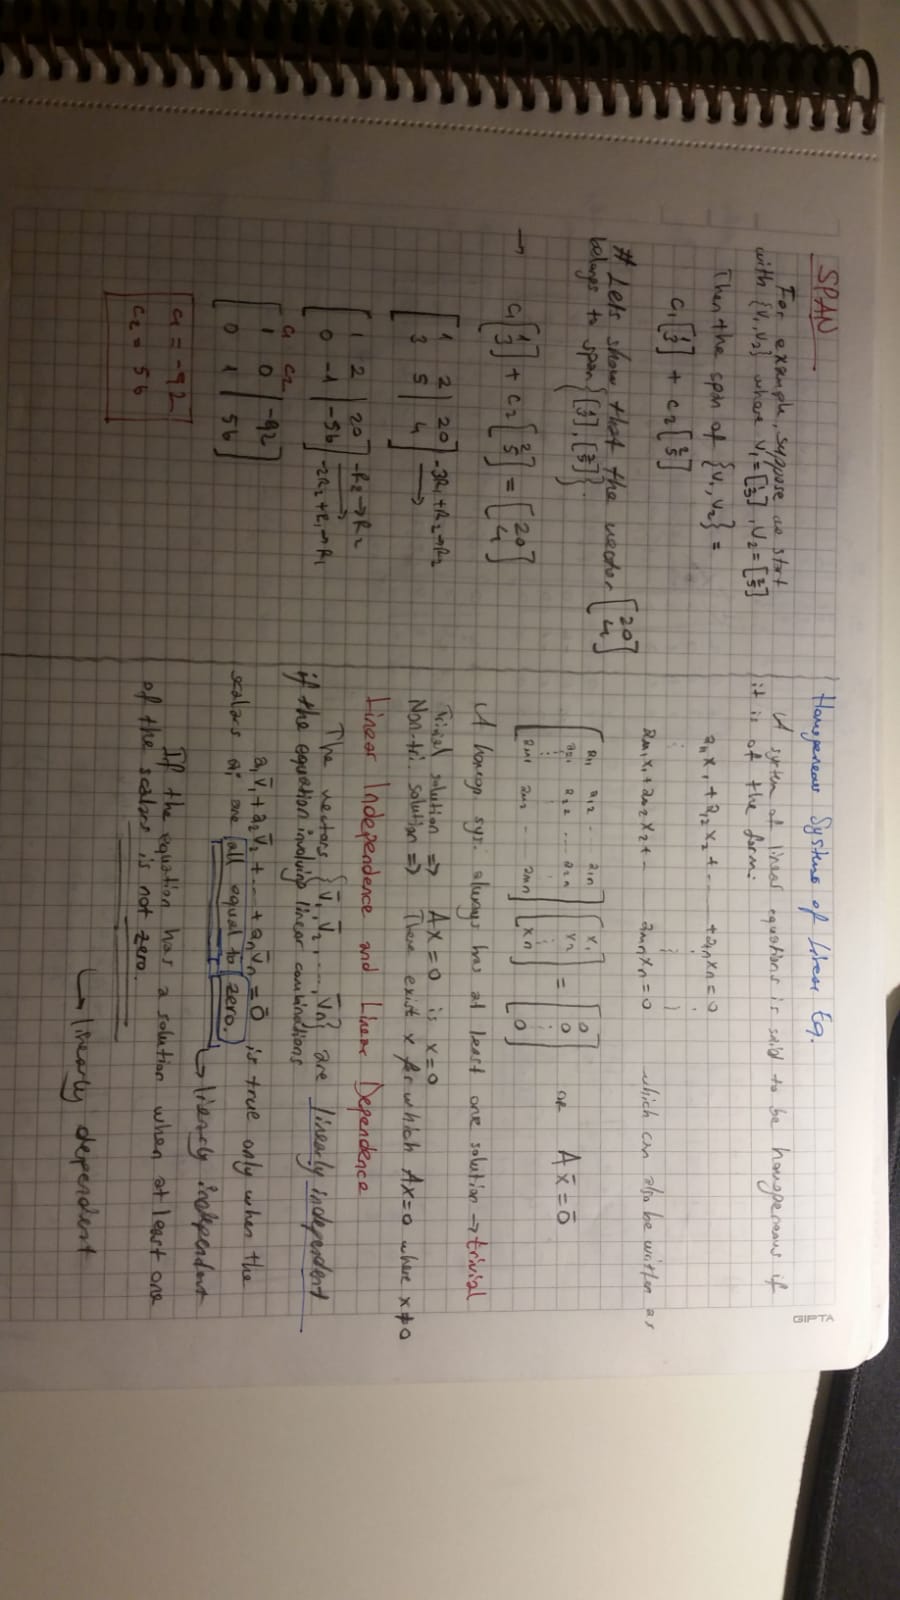 SPAN
For example, suppose we start
with {V₁,V₂} where V₁=[1 3], V₂=[2 5]
Then the span of {V₁,V₂} =
C₁[1 3] + C₂[2 5]
# Lets show that the vector [20 4]
belongs to span{[1 3],[2 5]}.
→ C₁[1 3] + C₂[2 5] = [20 4]
[1 2 | 20] -3R₁+R₂→R₂
[3 5 | 4] →
[1 2 | 20] -R₂→R₂
[0 -1 | -56] -2R₂+R₁→R₁
C₁ C₂
[1 0 | -92]
[0 1 | 56]
C₁ = -92
C₂ = 56
Homogeneous Systems of Linear Eq.
A system of linear equations is said to be homogeneous if
it is of the form:
a₁₁x₁ + a₁₂x₂ + ... +a₁ₙxₙ = 0
⋮ ⋮ ⋮
aₘ₁x₁+aₘ₂x₂+ ... aₘₙxₙ = 0 which can also be written as
[a₁₁ a₁₂ ... a₁ₙ] [x₁] [0]
[a₂₁ a₂₂ ... a₂ₙ] [x₂] = [0] OR Ax̄ = 0̄
[⋮ ⋮ ⋮] [⋮] [⋮]
[aₘ₁ aₘ₂ ... aₘₙ] [xₙ] [0]
A homog. sys. always has at least one solution → trivial
Trivial solution => Ax=0 is x=0
Non-tri. solution => There exist x for which Ax=0 where x≠0
Linear Independence and Linear Dependence
The vectors {v̄₁, v̄₂, ..., v̄ₙ} are linearly independent
if the equation involving linear combinations
a₁v̄₁+a₂v̄₂+...+aₙv̄ₙ = 0̄ is true only when the
scalars aᵢ are all equal to zero.
↳ linearly independent
If the equation has a solution when at least one
of the scalars is not zero.
↳ linearly dependent
GIPTA